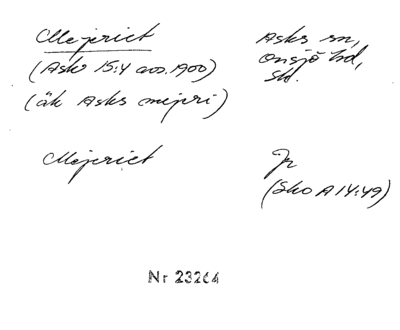 Mejeriet
Asks sn,
Onsjö hd,
Sk.
(Ask 15:4 avs. 1900)
(äk Asks mejeri)
Mejeriet
Jr
(Sko A 14:49)
Nr 23264